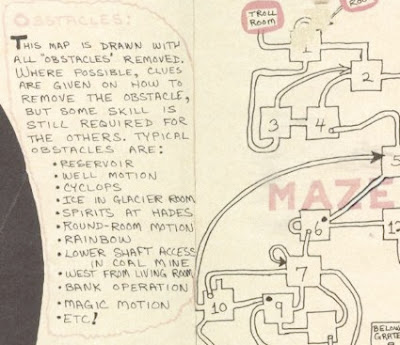 OBSTACLES:
THIS MAP IS DRAWN WITH
ALL "OBSTACLES" REMOVED.
WHERE POSSIBLE, CLUES
ARE GIVEN ON HOW TO
REMOVE THE OBSTACLE,
BUT SOME SKILL IS
STILL REQUIRED FOR
THE OTHERS. TYPICAL
OBSTACLES ARE:
• RESERVOIR
• WELL MOTION
• CYCLOPS
• ICE IN GLACIER ROOM
• SPIRITS AT HADES
• ROUND-ROOM MOTION
• RAINBOW
• LOWER SHAFT ACCESS
IN COAL MINE
• WEST FROM LIVING ROOM
• BANK OPERATION
• MAGIC MOTION
• ETC!
TROLL
ROOM
1
2
3
4
5
MAZE
6
12
7
9
10
BELOW
GRATE